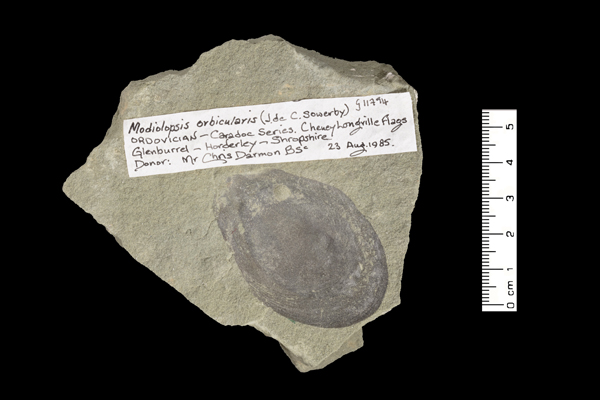 Modiolopsis orbicularis (J. de C. Sowerby) G11794
ORDOVICIAN – Caradoc Series. Cheney Longville Flags
Glenburrel – Horderley – Shropshire
Donor: Mr Chris Darmon BSc 23 Aug. 1985.
5
4
3
2
1
0 cm